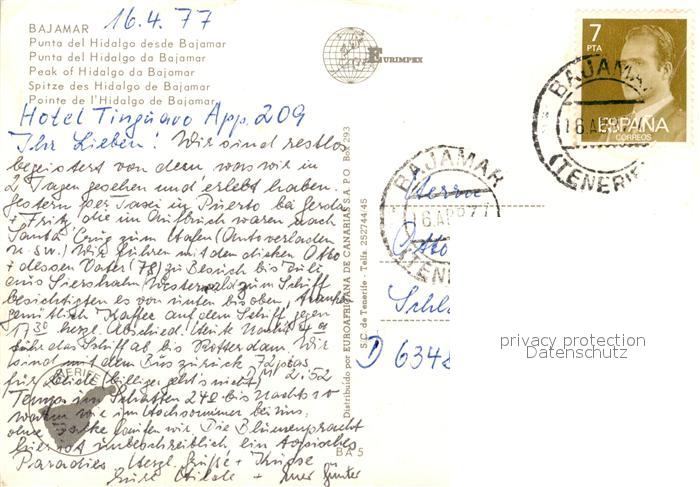 16.4.77
BAJAMAR
Punta del Hidalgo desde Bajamar
Punta del Hidalgo da Bajamar
Peak of Hidalgo da Bajamar
Spitze des Hidalgo de Bajamar
Pointe de l'Hidalgo de Bajamar
EURIMPEX
7
PTA
ESPAÑA
CORREOS
BAJAMAR
16 APR 77
(TENERIFE)
Hotel Tinguaro App. 209
Ihr Lieben! Wir sind restlos
begeistert von dem was wir in
2 Tagen gesehen und erlebt haben.
Gestern per Taxi in Puerto bei Gerda
+ Fritz, die im Aufbruch waren nach
Santa Cruz zum Hafen (Autoverladen
u. s.w.) Wir fuhren mit dem dicken Otto
+ dessen Vater (78) zu Besuch bis Juli
aus Siershahn Westerwald zum Schiff
besichtigten es von unten bis oben,
gemütlich Kaffee auf dem Schiff gegen
17 30 herzl. Abschied. Heute Nacht
fuhr das Schiff ab bis Rotterdam. Wir
sind mit dem Bus zurück 72 ptas
für beide (billiger geht's nicht) 2.52
Temp. im Schatten 24° bis Nachts so
warm wie im Hochsommer bei uns,
ohne Jacke laufen wir. Die Blumenpracht
hier ist unbeschreiblich ein tropisches
Paradies. Herzl. Grüße + Küsse
Eure Hilde + euer Günter
TENERIFE
Distribuido por EUROAFRICANA DE CANARIAS S.A. P O Box 293
S/C. de Tenerife - Telfs 252744/45
BA 5
BAJAMAR
16 APR 77
(TENE
Herrn
Otto
Schl
D 6348
privacy protection
Datenschutz